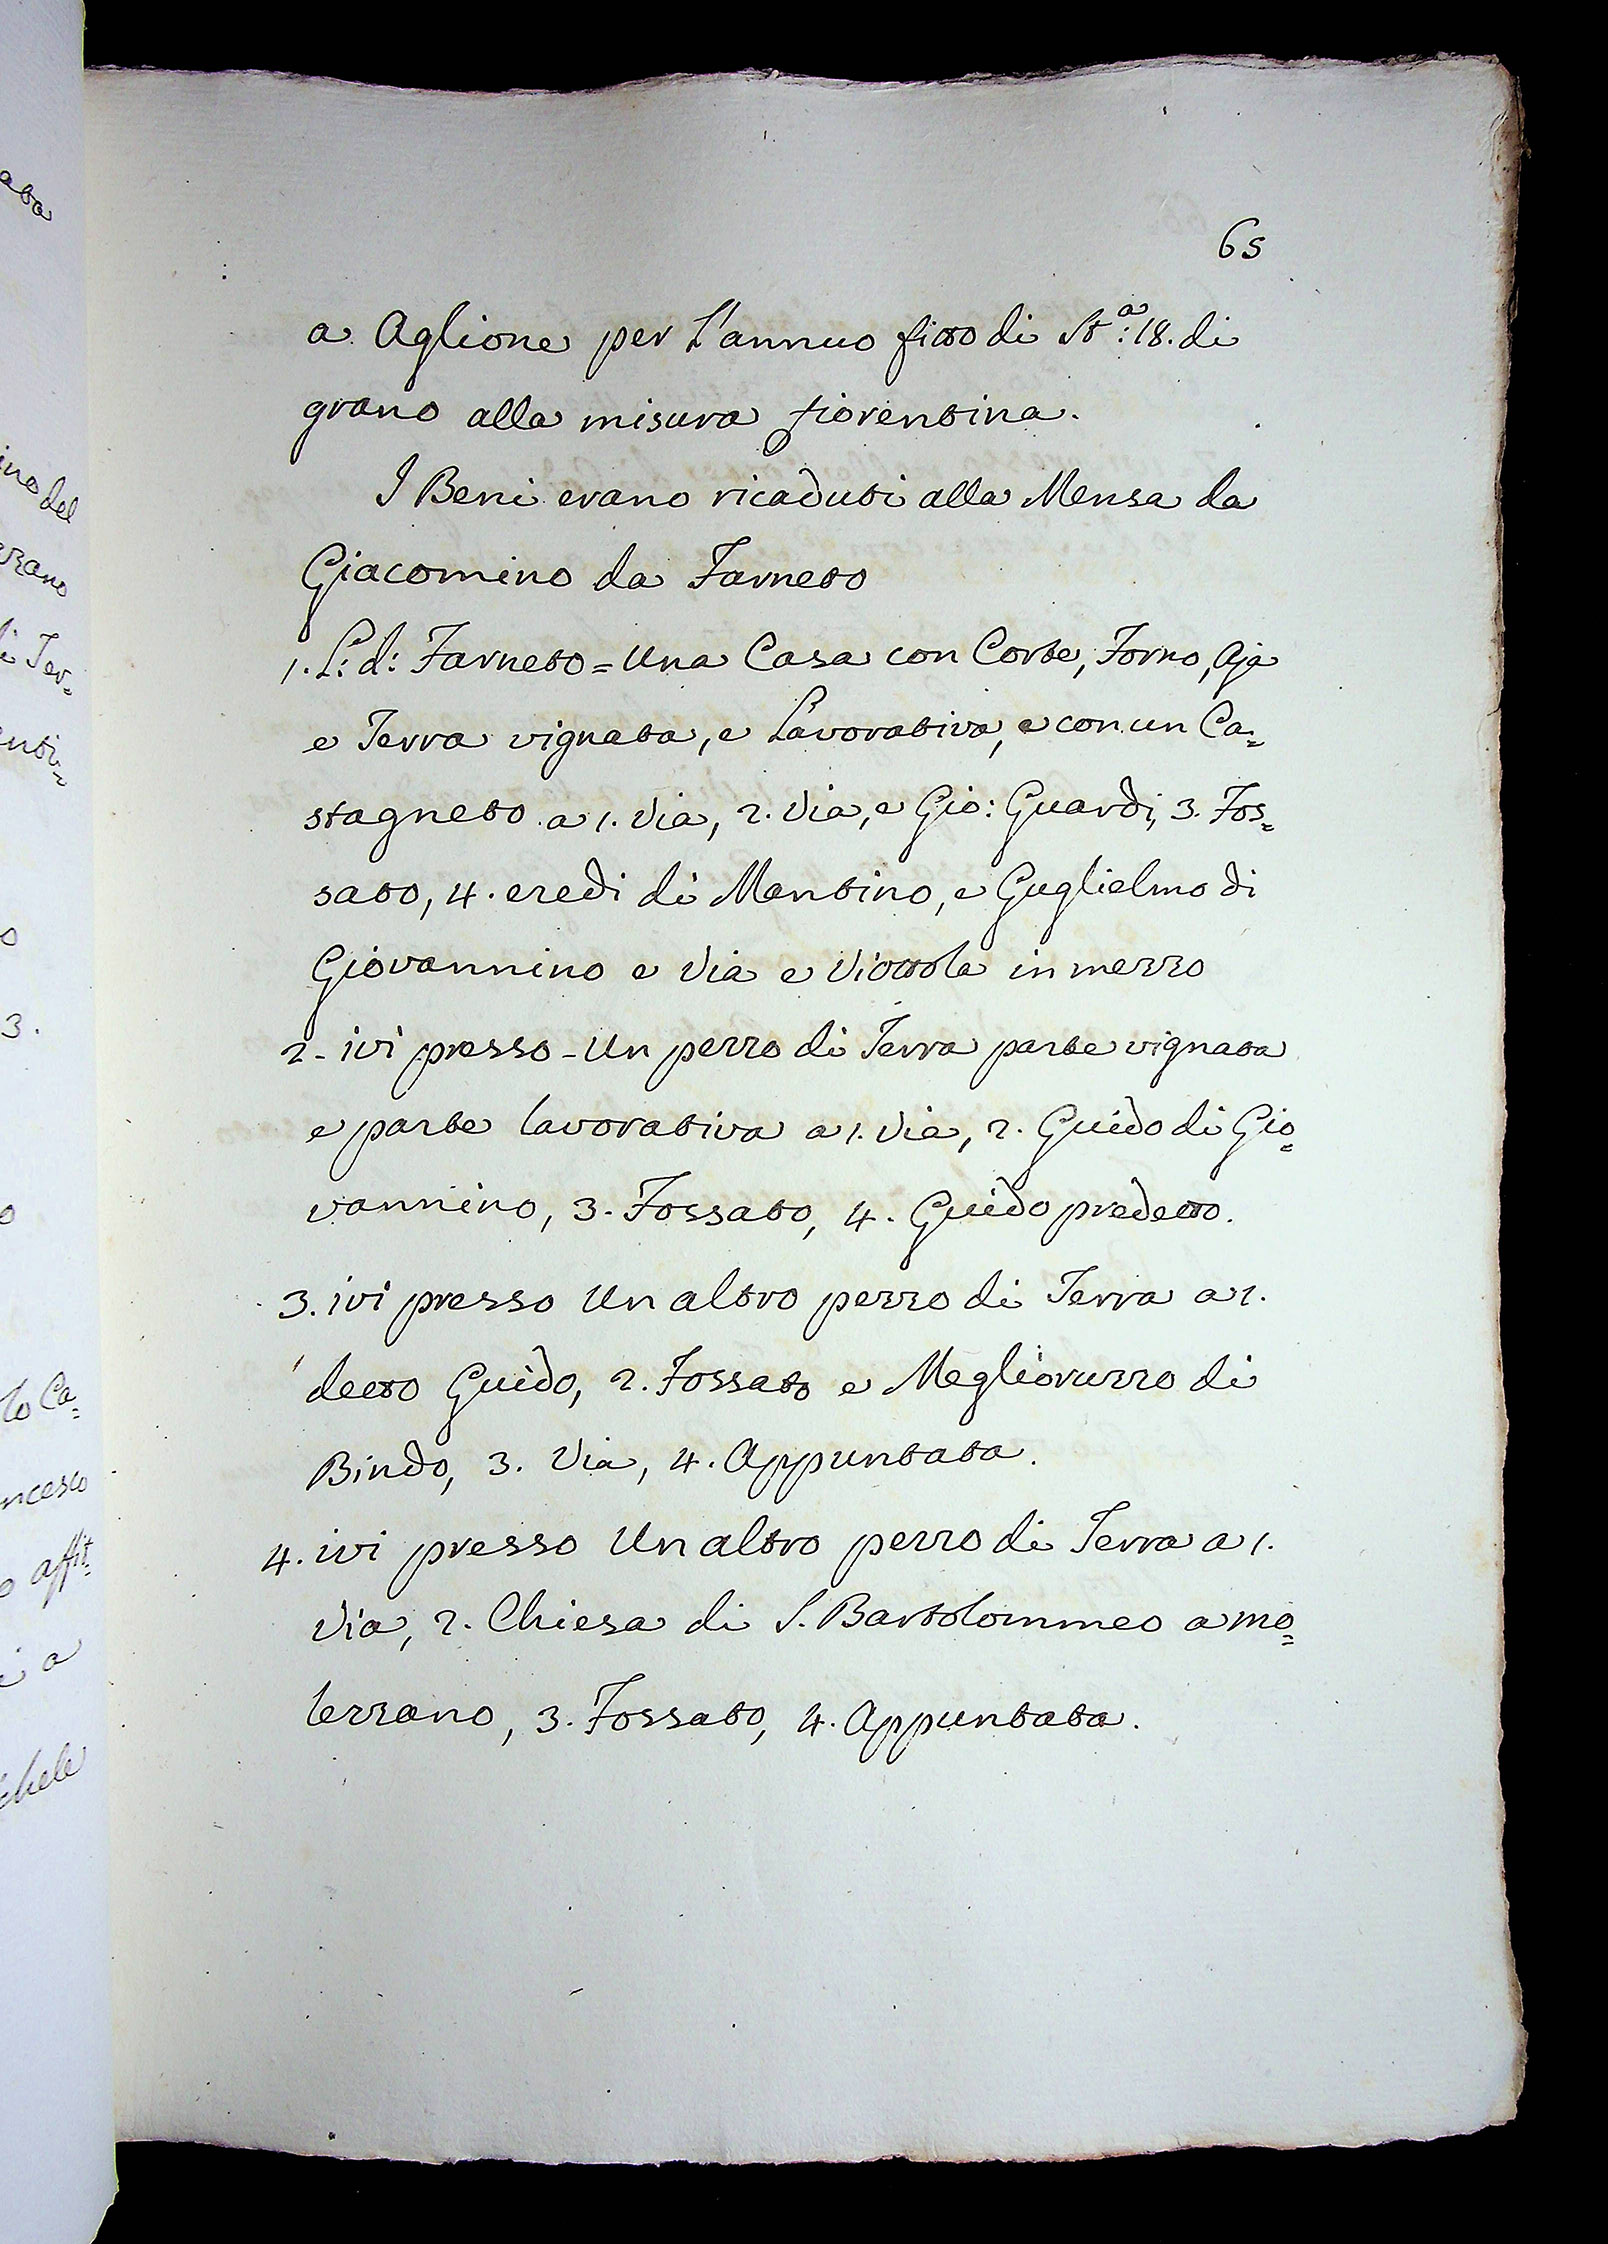 65
a Aglione per L'annuo fitto di St.a: 18. di
grano alla misura fiorentina.
I Beni erano ricaduti alla Mensa da
Giacomino da Farneto
1. L: d: Farneto = Una Casa con Corte, Forno, Aja
e Terra vignata, e Lavorativa, e con un Ca=
stagneto a 1. Via, 2. Via, e Gio: Guardi, 3. Fos=
sato, 4. eredi di Mantino, e Guglielmo di
Giovannino e Via e Viottola in mezzo
2 - ivi presso - Un pezzo di Terra parte vignata
e parte lavorativa a 1. Via, 2. Guido di Gio=
vannino, 3. Fossato, 4. Guido predetto.
3. ivi presso Un altro pezzo di Terra a 1.
detto Guido, 2. Fossato e Meglioruzzo di
Bindo, 3. Via, 4. Appuntata.
4. ivi presso Un altro pezzo di Terra a 1.
Via, 2. Chiesa di S. Bartolommeo a mo=
lezzano, 3. Fossato, 4. Appuntata.